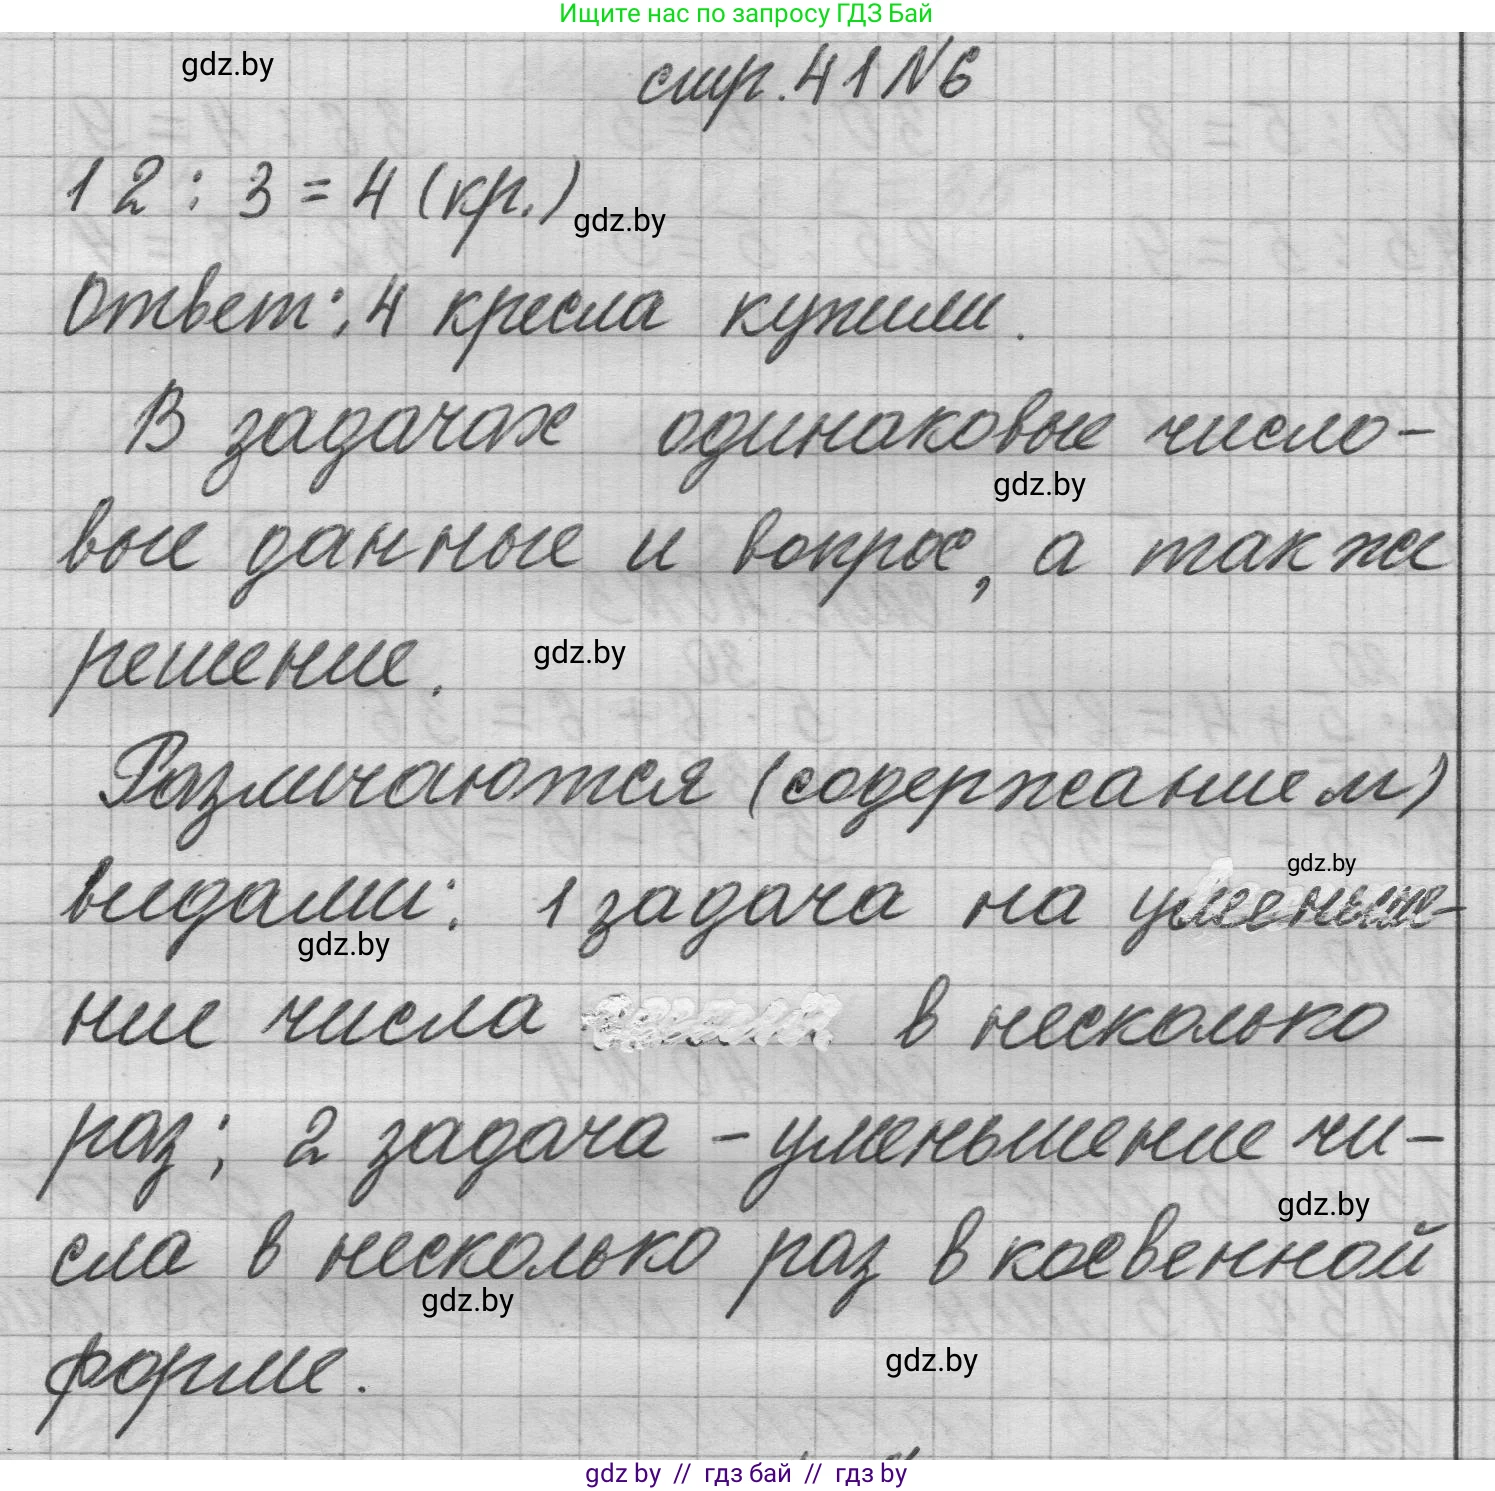 Ищите нас по запросу ГДЗ Бай
gdz.by
стр. 41 № 6
12 : 3 = 4 (кр.)
gdz.by
Ответ: 4 кресла купили.
В задачах одинаковые число-
gdz.by
вые данные и вопрос, а также
решение.
gdz.by
Различаются (содержанием)
gdz.by
видами: 1 задача на уменьше-
gdz.by
ние числа в несколько
раз; 2 задача – уменьшение чи-
gdz.by
сла в несколько раз в косвенной
gdz.by
форме.
gdz.by
gdz by // гдз бай // гдз by